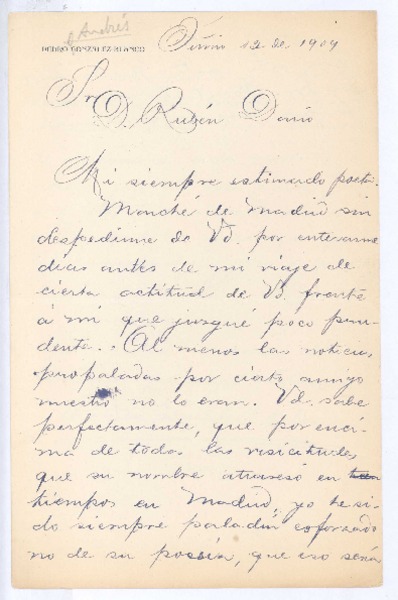 Andrés
PEDRO GONZÁLEZ-BLANCO
12 de 1909
Sr D. Rubén Darío
Mi siempre estimado poeta:
Marché de Madrid sin
despedirme de Vd. por enterarme
dias antes de mi viaje de
cierta actitud de Vd. frente
á mi que juzgué poco pru-
dente. Al menos las noticias
propaladas por cierto amigo
nuestro no lo eran. Vd. sabe
perfectamente, que por enci-
ma de todas las visicitudes,
que su nombre atravesó en
tiempos en Madrid, yo he si-
do siempre paladín esforzado
no de su poesía, que eso sería